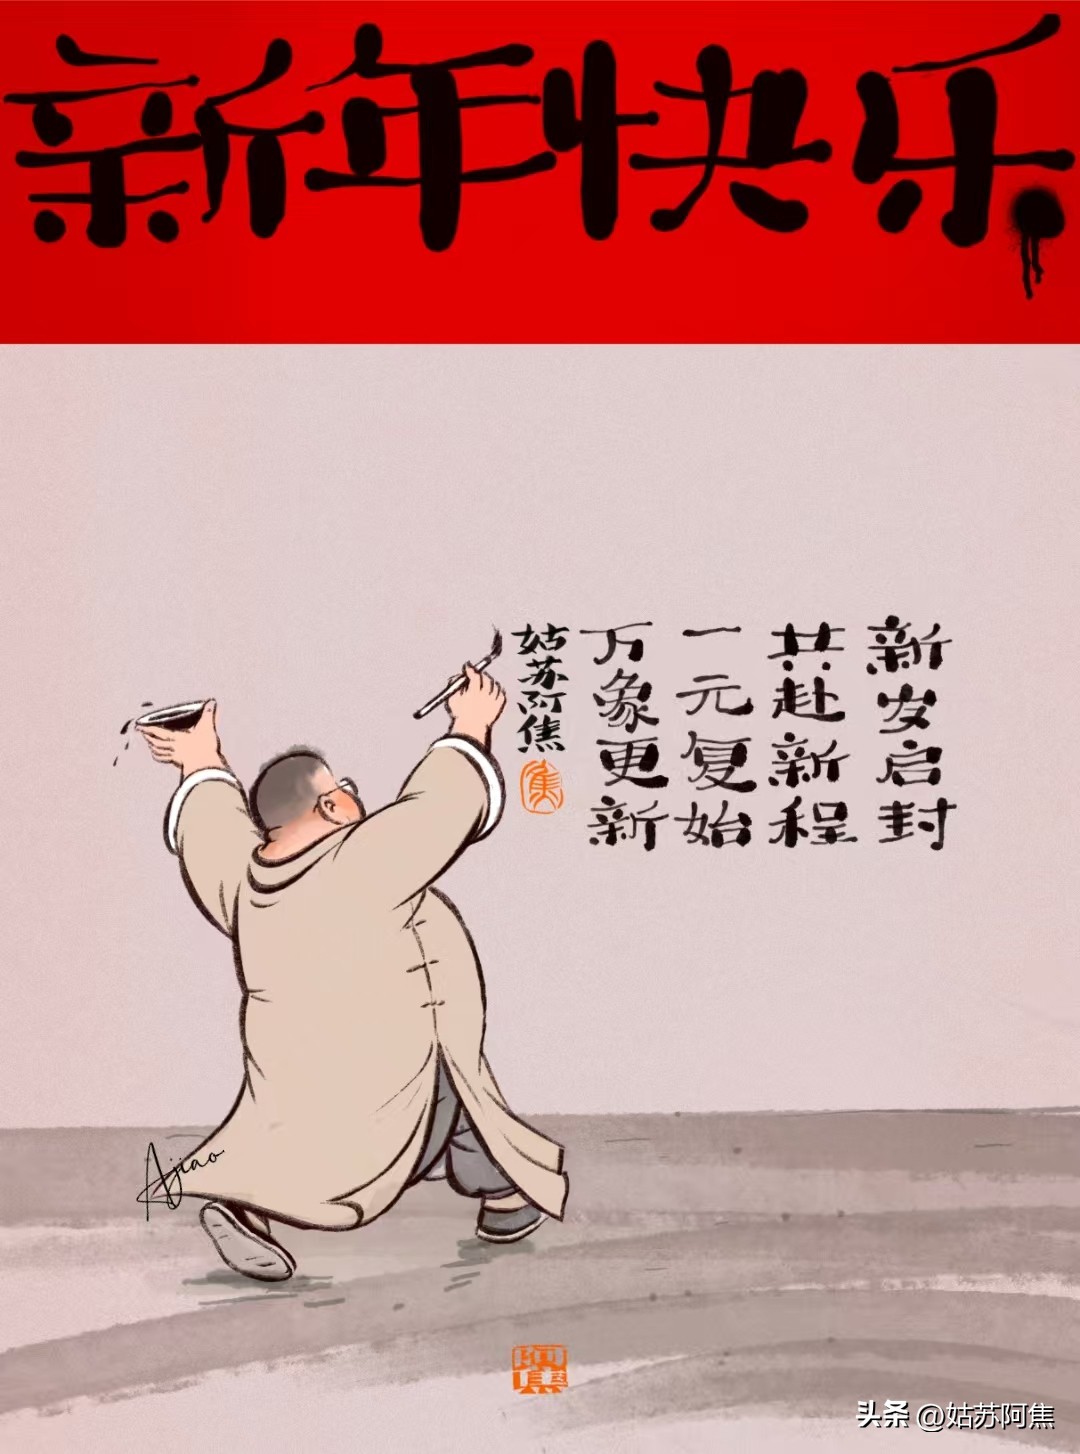 新年快乐
新岁启封
共赴新程
一元复始
万象更新
姑苏阿焦
焦
Ajiao
阿焦
头条 @姑苏阿焦